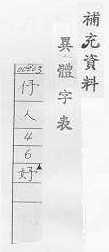 補充資料
異體字表
00903
㐨
人
4
6
好